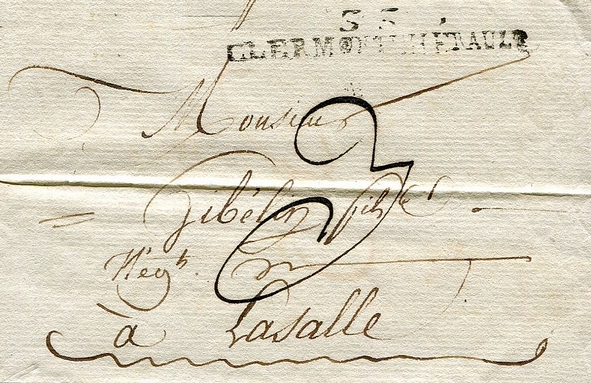 33
CLERMONT-L'HÉRAULT
Monsieur
3
Gibélin fils
Nég.t
à Lasalle